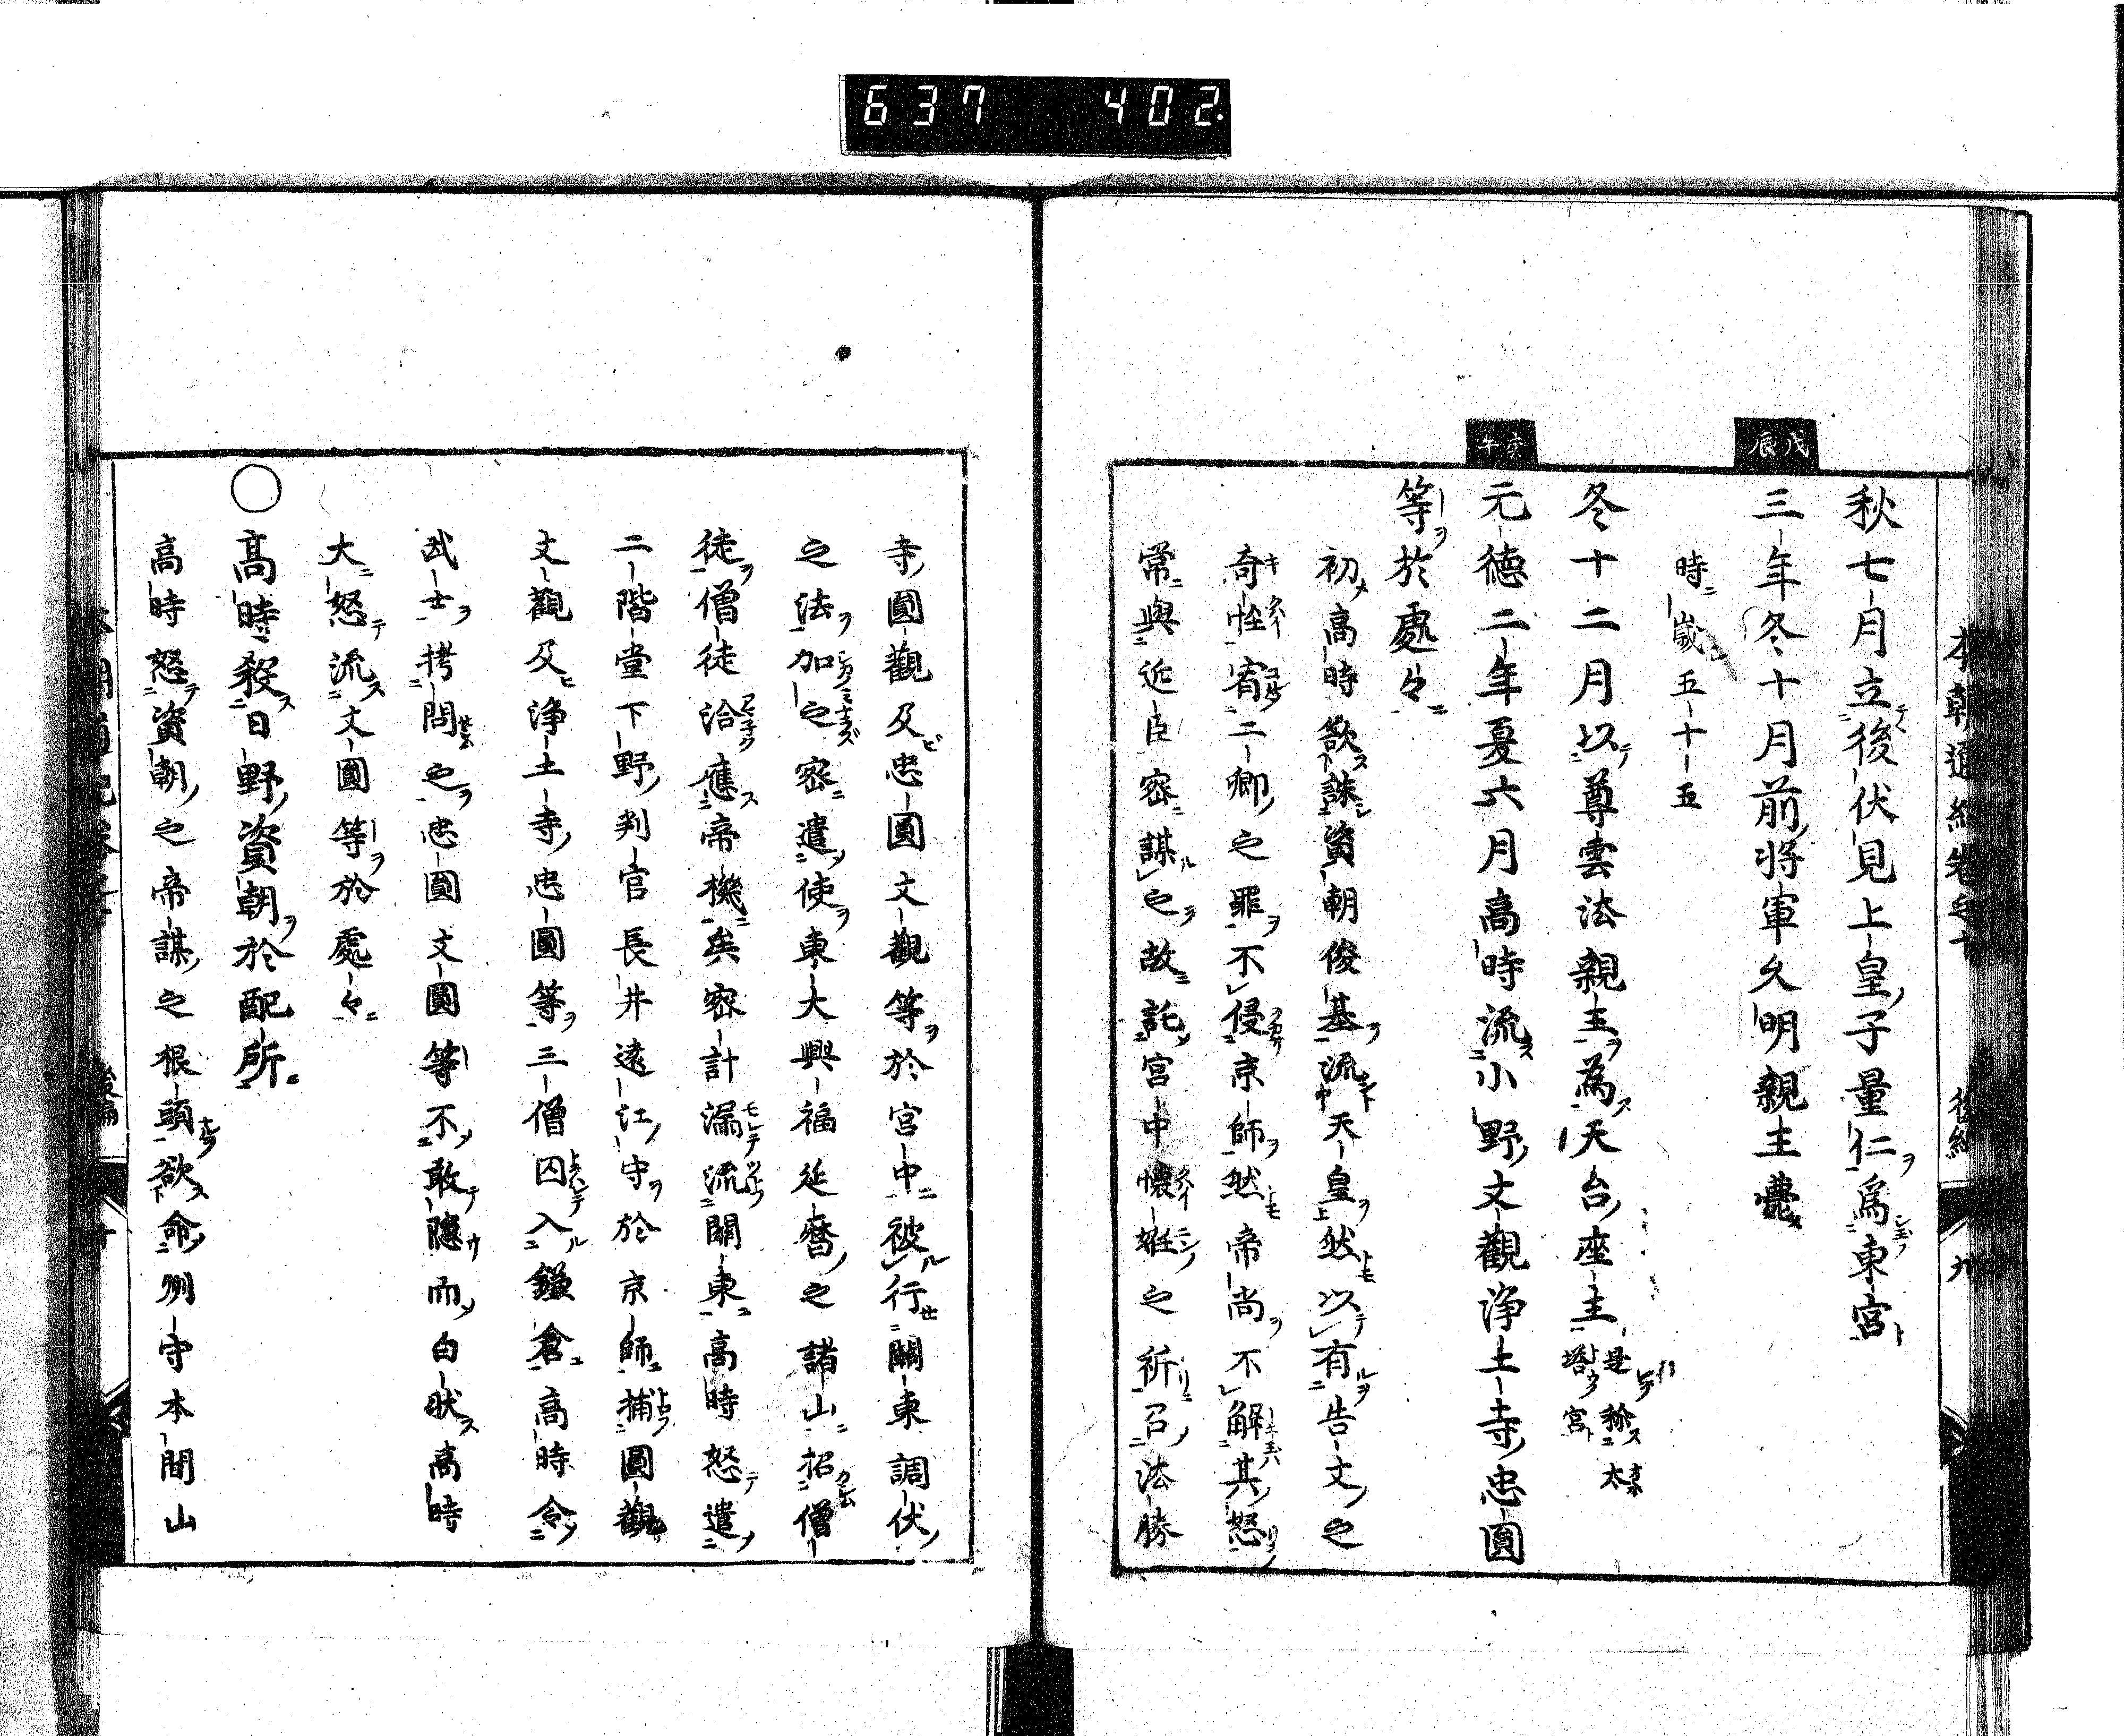 637 402
本朝通紀卷之十 後編 九
戊辰
庚午
秋七月立後伏見上皇子量仁爲東宮
三年冬十月前將軍久明親王薨
時歲五十五
冬十二月以尊雲法親王為天台座主是稱大塔宮
元德二年夏六月高時流小野文觀淨土寺忠圓
等於處々
初高時欲誅資朝俊基流天皇然以有告文之
奇恠宥二卿之罪不侵京師然帝尚不解其怒
常與近臣密謀之故託宮中懷姙之祈召法勝
寺圓觀及忠圓文觀等於宮中被行關東調伏
之法加之密遣使東大興福延曆之諸山招僧
徒僧徒洽應帝機矣密計漏流關東高時怒遣
二階堂下野判官長井遠江守於京師捕圓觀
文觀及淨土寺忠圓等三僧囚入鎌倉高時令
武士拷問之忠圓文圓等不敢隱而白狀高時
大怒流文圓等於處々
○高時殺日野資朝於配所
高時怒資朝之帝謀之根頭欲命州守本間山